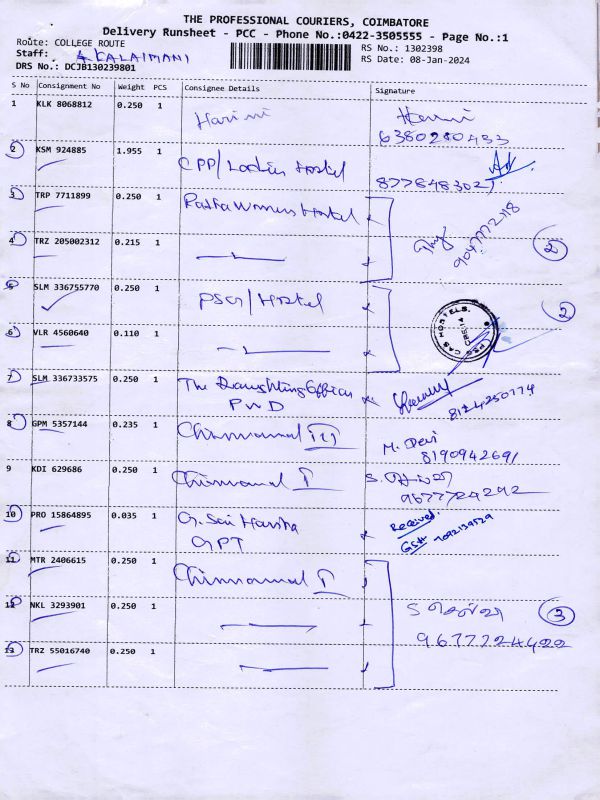 THE PROFESSIONAL COURIERS, COIMBATORE
Delivery Runsheet - PCC - Phone No.:0422-3505555 - Page No.:1
Route: COLLEGE ROUTE RS No.: 1302398
Staff: KALAIMANI RS Date: 08-Jan-2024
DRS No.: DCJB130239801
S No Consignment No Weight PCS Consignee Details Signature
1 KLK 8068812 0.250 1 Harini
6380280433
2 KSM 924885 1.955 1 CPP/Ladies Hostel
8778483027
3 TRP 7711899 0.250 1 Womens Hostel
4 TRZ 205002312 0.215 1 2
5 SLM 336755770 0.250 1 Hostel 2
CAS HOSTELS
6 VLR 4560640 0.110 1
7 SLM 336733575 0.250 1 The Draughting Officer
PWD 8124250774
8 GPM 5357144 0.235 1 Chinnamal III M. Devi
8190942691
9 KDI 629686 0.250 1 Chinnamal I
9677724292
10 PRO 15864895 0.035 1 G. Sai Harsha Received.
GPT
11 MTR 2406615 0.250 1 Chinnamal I
12 NKL 3293901 0.250 1 3
13 TRZ 55016740 0.250 1 9677724422